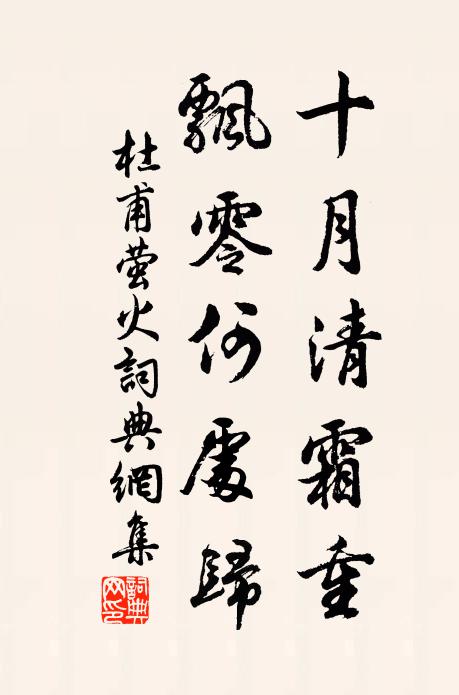 十月清霜重
飄零何處歸
杜甫螢火詞典網集
詞典網印